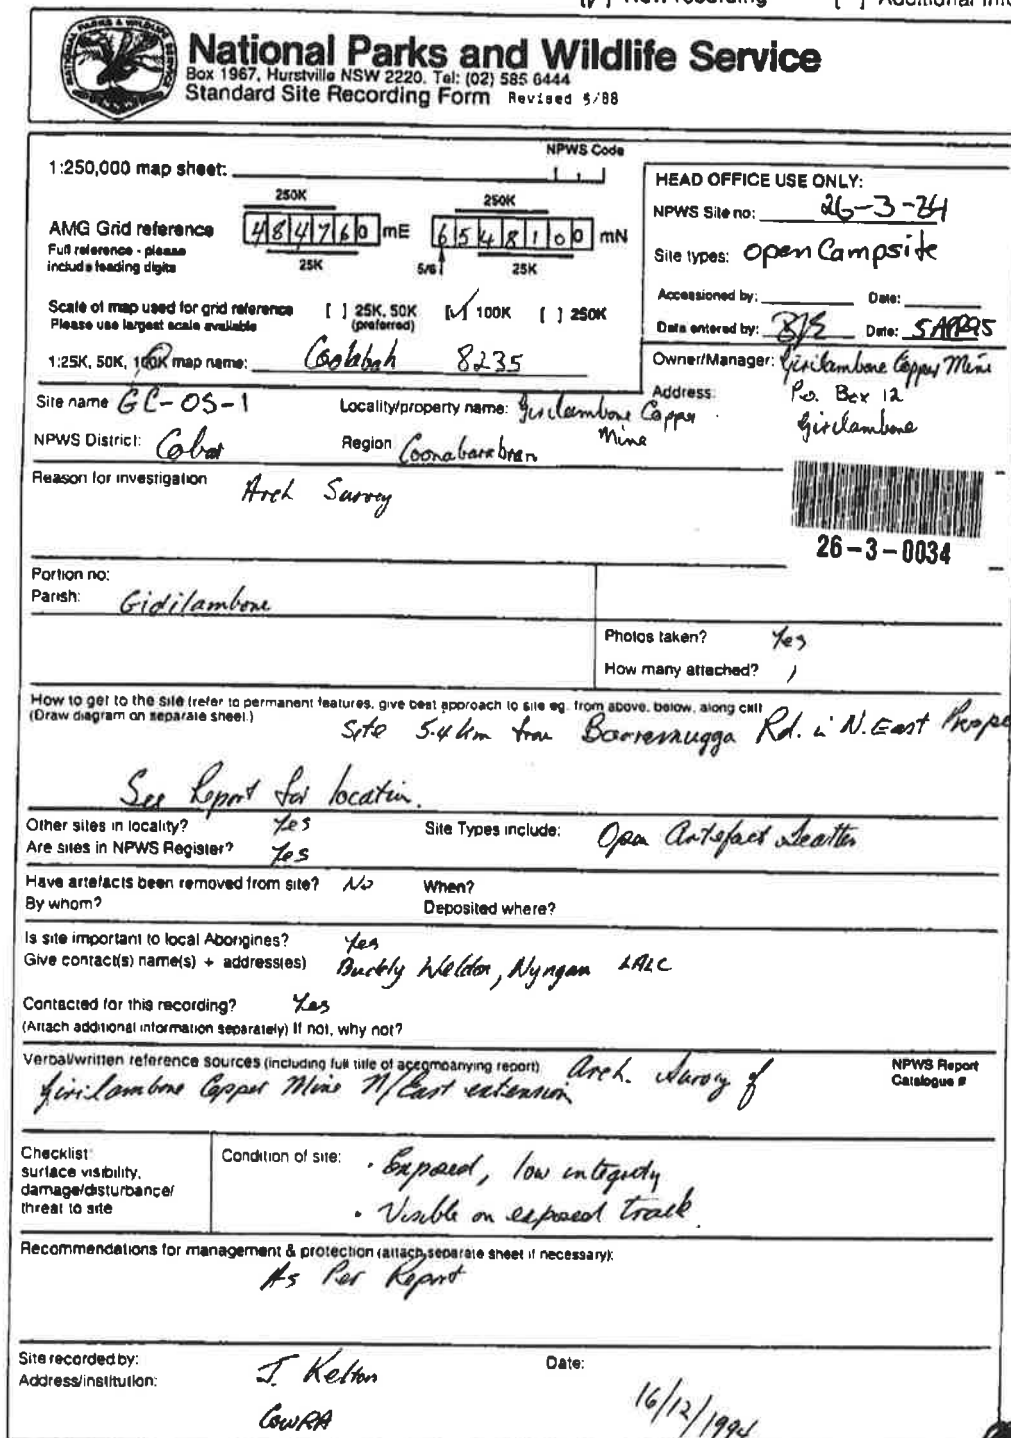 [✓] New recording [ ] Additional Info
NATIONAL PARKS & WILDLIFE SERVICE
National Parks and Wildlife Service
Box 1967, Hurstville NSW 2220. Tel: (02) 585 6444
Standard Site Recording Form Revised 5/88
NPWS Code
1:250,000 map sheet:
HEAD OFFICE USE ONLY:
NPWS Site no: 26-3-34
250K 250K
AMG Grid reference 484760 mE 6548100 mN
Full reference - please
include leading digits
25K 5/6 25K
Site types: Open Campsite
Accessioned by: Date:
Scale of map used for grid reference [ ] 25K, 50K [✓] 100K [ ] 250K
Please use largest scale available (preferred)
Data entered by: Date: 5APR95
1:25K, 50K, 100K map name: Coolabah 8235
Owner/Manager: Girilambone Copper Mine
Address: P.O. Box 12
Girilambone
Site name GC-OS-1 Locality/property name: Girilambone Copper
Mine
NPWS District: Cobar Region Coonabarabran
Reason for investigation
Arch Survey
26-3-0034
Portion no:
Parish: Gidilambone
Photos taken? Yes
How many attached? 1
How to get to the site (refer to permanent features, give best approach to site eg. from above, below, along cliff
(Draw diagram on separate sheet.)
Site 5.4 km from Booramugga Rd. in N. East
See Report for location.
Other sites in locality? Yes Site Types include: Open Artefact Scatter
Are sites in NPWS Register? Yes
Have artefacts been removed from site? No When?
By whom? Deposited where?
Is site important to local Aborigines? Yes
Give contact(s) name(s) + address(es) Weldon, Nyngan LALC
Contacted for this recording? Yes
(Attach additional information separately) If not, why not?
Verbal/written reference sources (including full title of accompanying report) Arch. Survey of
Girilambone Copper Mine N/East extension
NPWS Report
Catalogue #
Checklist:
surface visibility,
damage/disturbance/
threat to site
Condition of site: • Exposed, low integrity
• Visible on exposed track.
Recommendations for management & protection (attach separate sheet if necessary):
As Per Report
Site recorded by: J. Kelton Date: 16/12/1994
Address/institution: COWRA